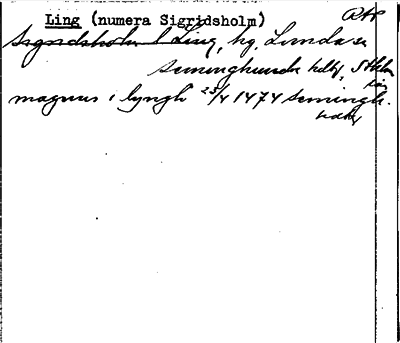 Ling (numera Sigridsholm)
Sigridsholm l Ling, hg, Lunda sn
Seminghundra hdd, Sthlms
län
magnus i lyngh 23/4 1474 Semingh.
hdd